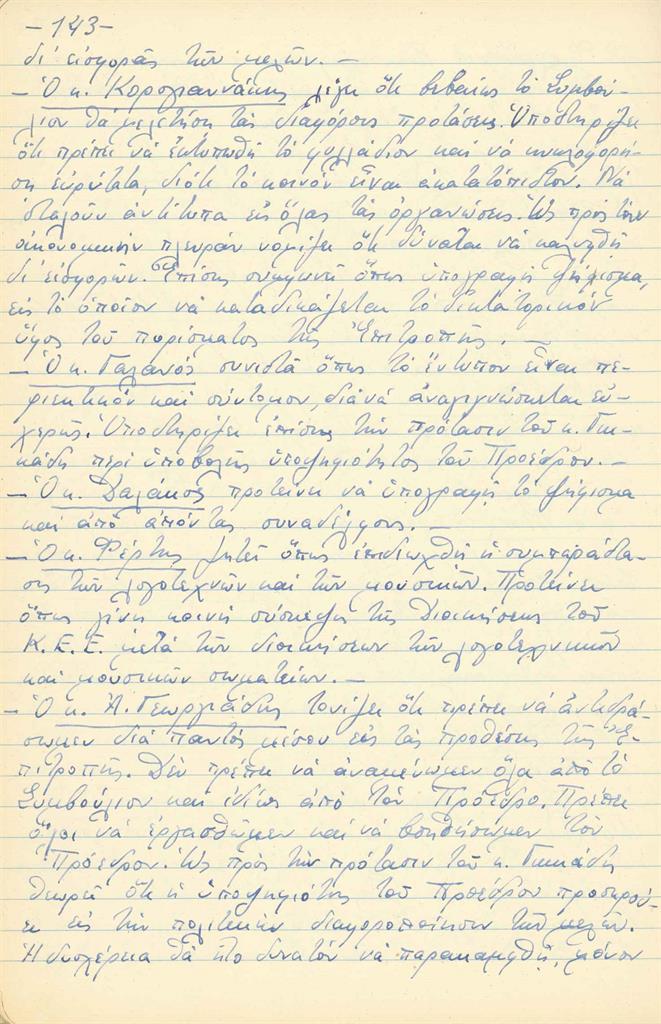 -143-
δι' εισφοράς τῶν μελῶν. -
- Ὁ κ. Κορογιαννάκης λέγει ὅτι βεβαίως τό Συμβού-
λιον θά μελετήσῃ τάς διαφόρους προτάσεις. Ὑποστηρίζει
ὅτι πρέπει νά ἐκτυπωθῇ τό φυλλάδιον καί νά κυκλοφορή-
σῃ εὐρύτατα, διότι τό κοινόν εἶναι ἀκατατόπιστον. Νά
σταλοῦν ἀντίτυπα εἰς ὅλας τάς ὀργανώσεις. Ὡς πρός τήν
οἰκονομικήν πλευράν νομίζει ὅτι δύναται νά καλυφθῇ
δι' εἰσφορῶν. Ἐπίσης συμφωνεῖ ὅπως ὑπογραφῇ ψήφισμα,
εἰς τό ὁποῖον νά καταδικάζεται τό δικτατορικόν
ὕφος τοῦ πορίσματος τῆς Ἐπιτροπῆς. -
- Ὁ κ. Γαλανός συνιστᾶ ὅπως τό ἔντυπον εἶναι πε-
ριεκτικόν καί σύντομον, διά νά ἀναγιγνώσκεται εὐ-
χερῶς. Ὑποστηρίζει ἐπίσης τήν πρότασιν τοῦ κ. Γικ-
κάδη περί ὑποβολῆς ὑποψηφιότητος τοῦ Προέδρου. -
- Ὁ κ. Δαλάκος προτείνει νά ὑπογραφῇ τό ψήφισμα
καί ἀπό ἀπόντας συναδέλφους. -
- Ὁ κ. Φέρτης ζητεῖ ὅπως ἐπιδιωχθῇ ἡ συμπαράστα-
σις τῶν λογοτεχνῶν καί τῶν μουσικῶν. Προτείνει
ὅπως γίνῃ κοινή σύσκεψις τῆς Διοικήσεως τοῦ
Κ.Ε.Ε. μετά τῶν διοικήσεων τῶν λογοτεχνικῶν
καί μουσικῶν σωματείων. -
- Ὁ κ. Ἀ. Γεωργιάδης τονίζει ὅτι πρέπει νά ἀντιδρά-
σωμεν διά παντός μέσου εἰς τάς προθέσεις τῆς Ἐ-
πιτροπῆς. Δέν πρέπει νά ἀναμένωμεν ὅλα ἀπό τό
Συμβούλιον καί ἰδίως ἀπό τόν Πρόεδρο. Πρέπει
ὅλοι νά ἐργασθῶμεν καί νά βοηθήσωμεν τόν
Πρόεδρον. Ὡς πρός τήν πρότασιν τοῦ κ. Γικκάδη
θεωρεῖ ὅτι ἡ ὑποψηφιότης τοῦ Προέδρου προσκρού-
ει εἰς τήν πολιτικήν διαφοροποίησιν τῶν μελῶν.
Ἡ δυσχέρεια θά ἦτο δυνατόν νά παρακαμφθῇ, μόνον